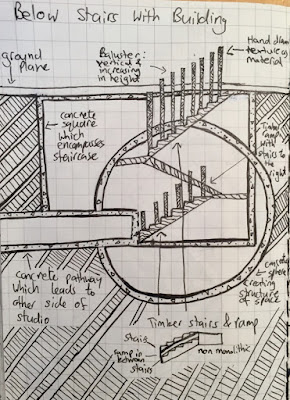 Below Stairs With Building
ground
plane
Baluster:
vertical &
increasing
in height
Hand drawn
texture as
material
concrete
square
which
encompasses
staircase
Timber
ramp with
stairs to
the
right
concrete
sphere
creating
structure
of space
concrete pathway
which leads to
other side of
studio
Timber stairs & ramp
stairs
ramp in
between
stairs
non monolithic